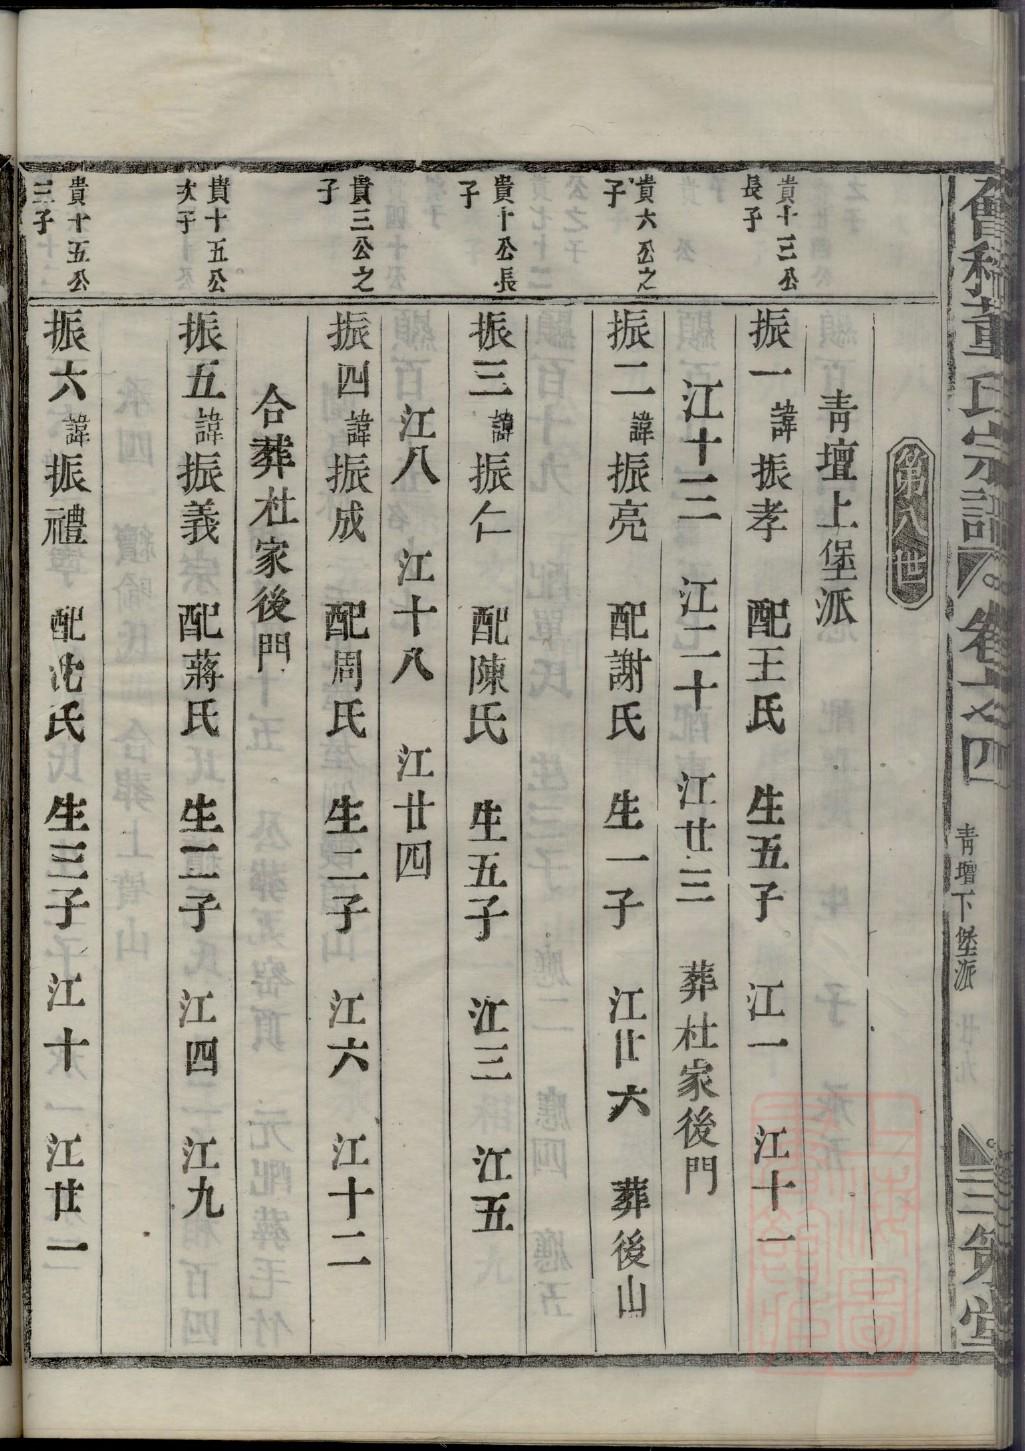 會稽董氏宗譜
卷之四
青壇下堡派
廿九
三策堂
第八世
青壇上堡派
貴十三公
長子
振一 諱振孝 配王氏 生五子 江一 江十一
江十三 江二十 江廿三 葬杜家後門
貴六公之
子
振二 諱振亮 配謝氏 生一子 江廿六 葬後山
貴十公長
子
振三 諱振仁 配陳氏 生五子 江三 江五
江八 江十八 江廿四
貴三公之
子
振四 諱振成 配周氏 生二子 江六 江十二
合葬杜家後門
貴十五公
次子
振五 諱振義 配蔣氏 生二子 江四 江九
貴十五公
三子
振六 諱振禮 配沈氏 生三子 江十 江廿一